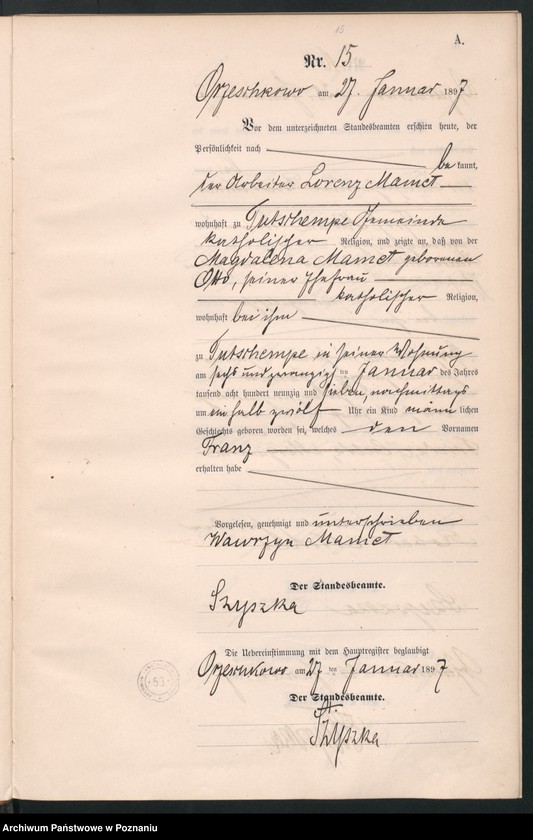 15
A.
Nr. 15
Orzeschkowo am 27. Januar 1897
Vor dem unterzeichneten Standesbeamten erschien heute, der
Persönlichkeit nach bekannt,
der Arbeiter Lorenz Mamet
wohnhaft zu Tutschempe Gemeinde
katholischer Religion, und zeigte an, daß von der
Magdalena Mamet geborenen
Otto, seiner Ehefrau
katholischer Religion,
wohnhaft bei ihm
zu Tutschempe in seiner Wohnung
am sechs und zwanzigsten Januar des Jahres
tausend acht hundert neunzig und sieben, nachmittags
um ein halb zwölf Uhr ein Kind männlichen
Geschlechts geboren worden sei, welches den Vornamen
Franz
erhalten habe
Vorgelesen, genehmigt und unterschrieben
Wawrzyn Mamet
Der Standesbeamte.
Szyszka
Die Uebereinstimmung mit dem Hauptregister beglaubigt
Orzeschkowo am 27 ten Januar 1897
Der Standesbeamte.
Szyszka
53
Archiwum Państwowe w Poznaniu